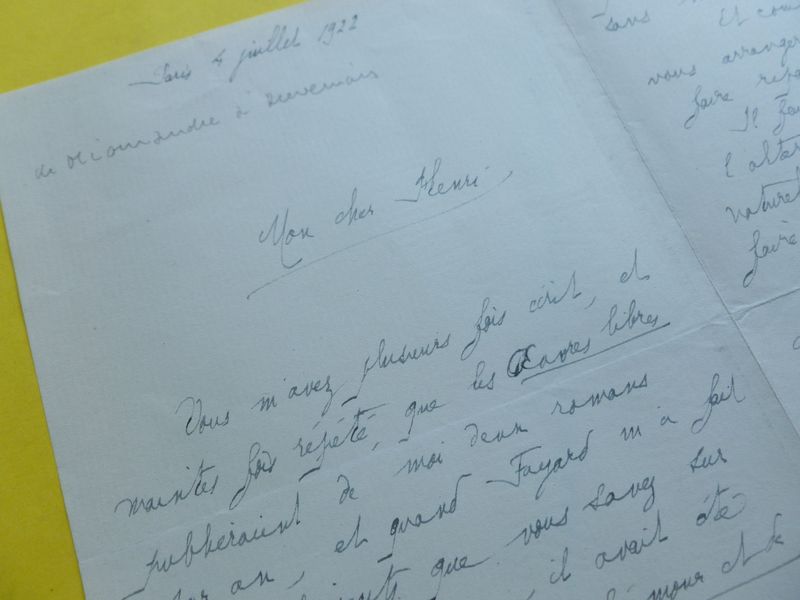 Paris 4 juillet 1922
de Miomandre à Duvernois
Mon cher Henri
Vous m'avez plusieurs fois écrit, et
maintes fois répété, que les Œuvres libres
publieraient de moi deux romans
par an, et quand Fayard m'a fait
que vous savez sur
il avait été
amour et de
sans
Et
vous arranger
faire
Il
naturel
faire